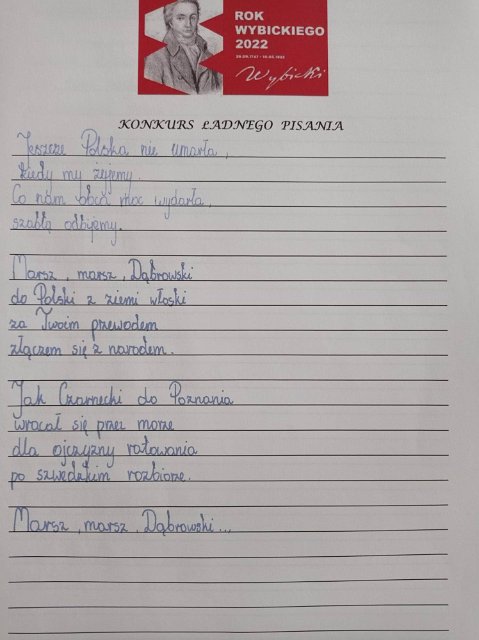 ROK
WYBICKIEGO
2022
Wybicki
KONKURS ŁADNEGO PISANIA
Jeszcze Polska nie umarła,
kiedy my żyjemy.
Co nam obca moc wydarła,
szablą odbijemy.
Marsz, marsz, Dąbrowski
do Polski z ziemi włoski
za Twoim przewodem
złączem się z narodem.
Jak Czarnecki do Poznania
wracał się przez morze
dla ojczyzny ratowania
po szwedzkim rozbiorze.
Marsz, marsz, Dąbrowski...